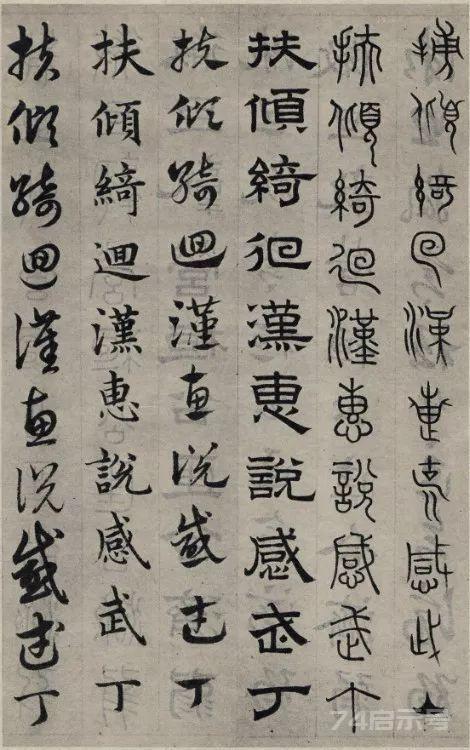 扶傾綺回漢惠說感武丁
扶傾綺迴漢惠說感武丁
扶傾綺佪漢惠說感武丁
扶傾綺迴漢惠說感武丁
扶傾綺迴漢惠說感武丁
扶傾綺迴漢惠說感武丁
74启示